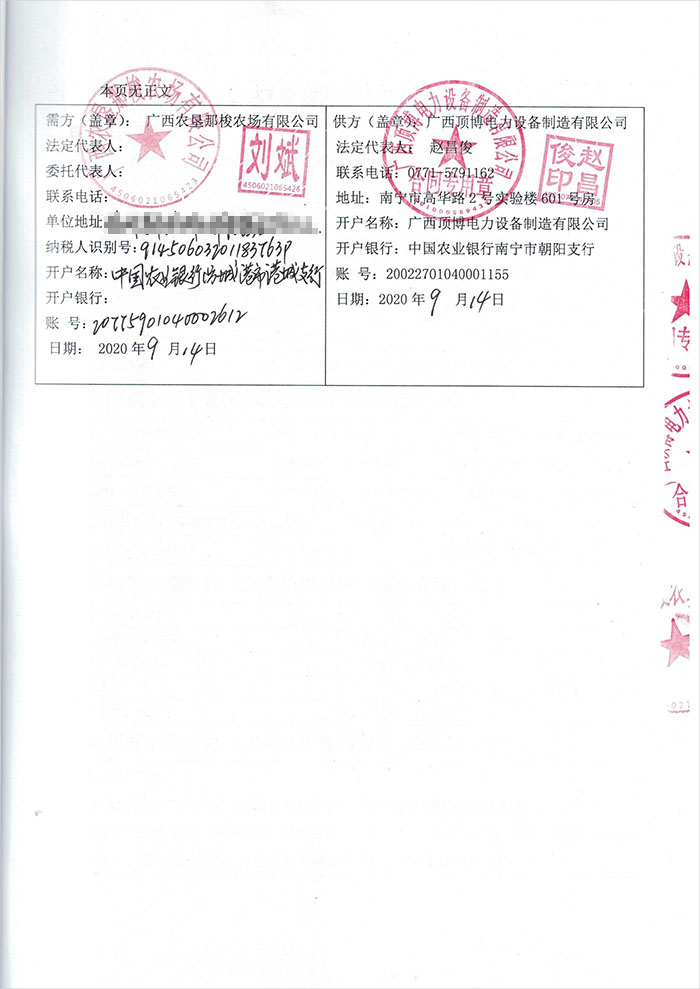 本页无正文
需方（盖章）：广西农垦那梭农场有限公司
法定代表人：
委托代表人：
联系电话：
单位地址：
纳税人识别号：91450603201183763P
开户名称：中国农业银行防城港市港城支行
开户银行：
账 号：20775901040002612
日期： 2020 年 9 月 14 日
刘斌
4506021065426
4506021065423
供方（盖章）：广西顶博电力设备制造有限公司
法定代表人： 赵昌俊
联系电话：0771-5791162
地址：南宁市高华路 2 号实验楼 601 号房
开户名称：广西顶博电力设备制造有限公司
开户银行：中国农业银行南宁市朝阳支行
账 号：20022701040001155
日期：2020 年 9 月 14 日
广西顶博电力设备制造有限公司
合同专用章
赵昌俊印